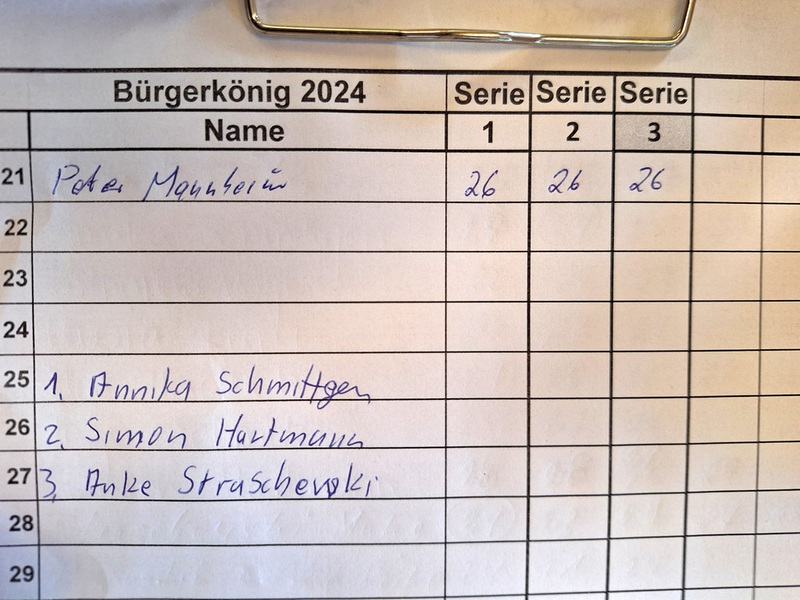 Bürgerkönig 2024 Serie Serie Serie
Name 1 2 3
21 Peter Mannheim 26 26 26
22
23
24
25 1. Annika Schmittgen
26 2. Simon Hartmann
27 3. Anke Straschewski
28
29